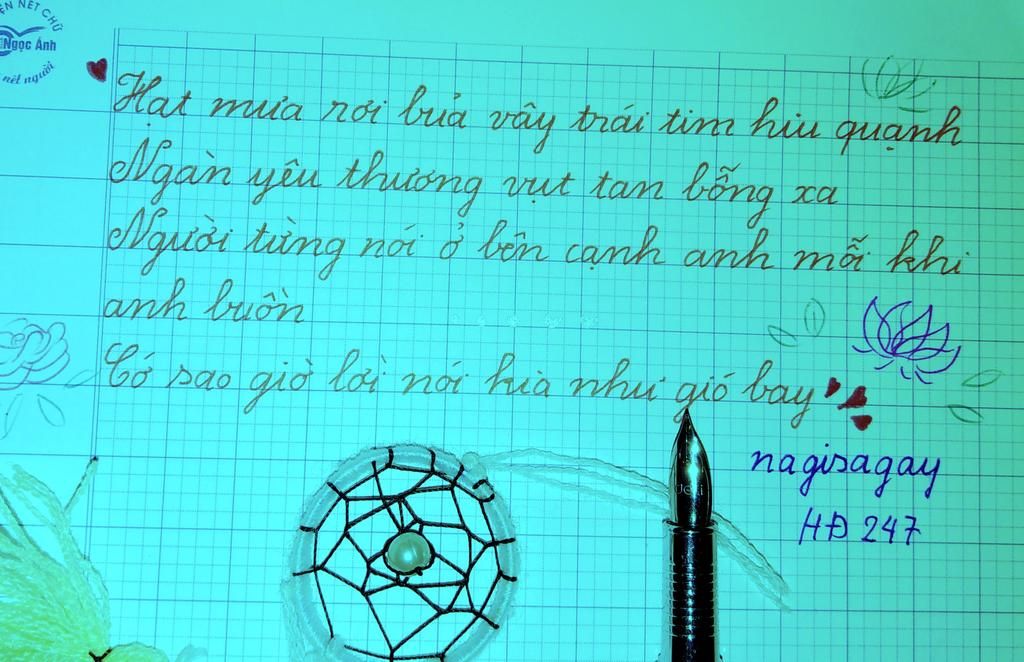 ỆN NÉT CHỮ
Ngọc Ánh
nết người
Hạt mưa rơi bủa vây trái tim hiu quạnh
Ngàn yêu thương vụt tan bỗng xa
Người từng nói ở bên cạnh anh mỗi khi
anh buồn
Cớ sao giờ lời nói kia như gió bay
nagisagay
HĐ 247
Deli